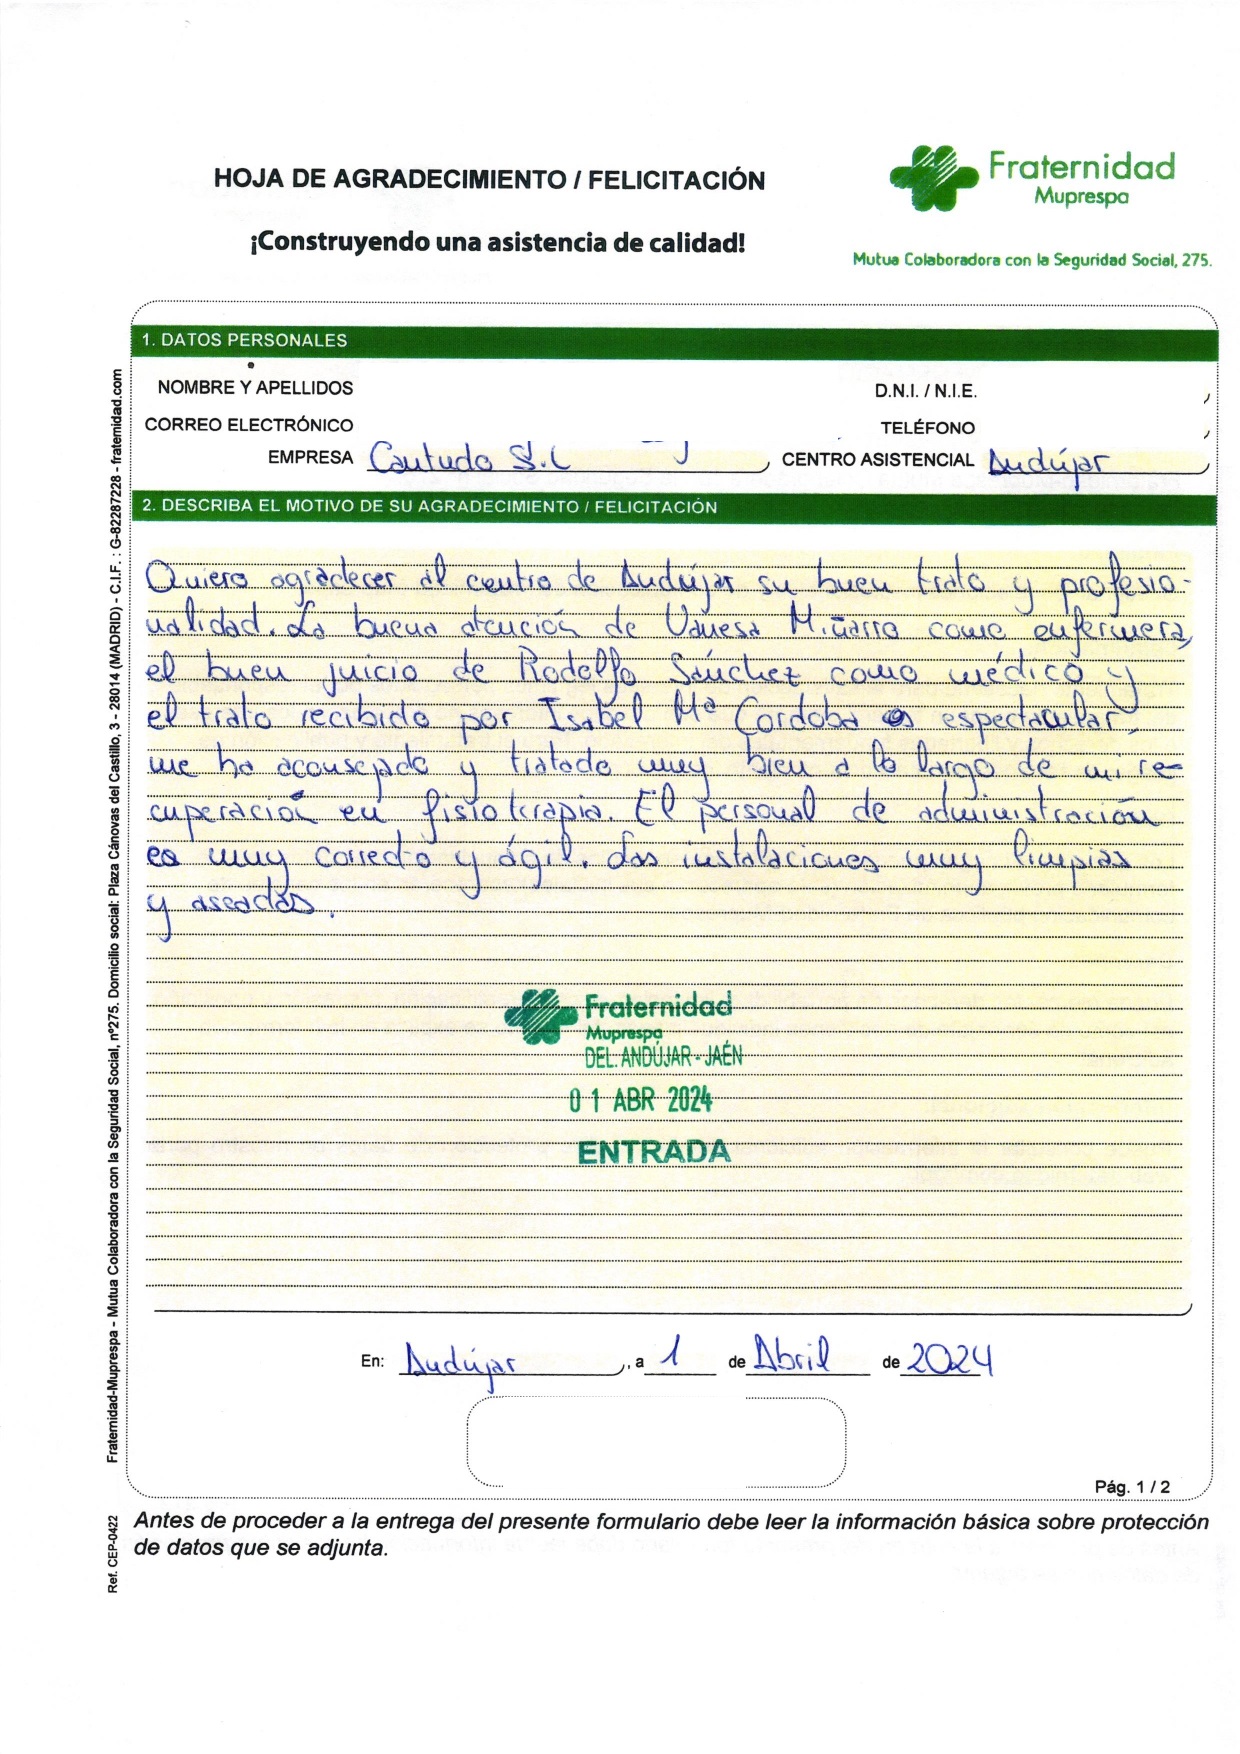 HOJA DE AGRADECIMIENTO / FELICITACIÓN
¡Construyendo una asistencia de calidad!
Fraternidad
Muprespa
Mutua Colaboradora con la Seguridad Social, 275.
1. DATOS PERSONALES
NOMBRE Y APELLIDOS
D.N.I. / N.I.E.
CORREO ELECTRÓNICO
TELÉFONO
EMPRESA Cantudo S.L
CENTRO ASISTENCIAL Andújar
2. DESCRIBA EL MOTIVO DE SU AGRADECIMIENTO / FELICITACIÓN
Quiero agradecer al centro de Andújar su buen trato y profesio-
nalidad. La buena atención de Vanesa Miñarro como enfermera,
el buen juicio de Rodolfo Sánchez como médico y
el trato recibido por Isabel Mª Cordoba es espectacular,
me ha aconsejado y tratado muy bien a lo largo de mi re-
cuperación en fisioterapia. El personal de administración
es muy correcto y ágil. Las instalaciones muy limpias
y aseadas.
Fraternidad
Muprespa
DEL. ANDÚJAR - JAÉN
01 ABR 2024
ENTRADA
En: Andújar, a 1 de Abril de 2024
Pág. 1 / 2
Antes de proceder a la entrega del presente formulario debe leer la información básica sobre protección
de datos que se adjunta.
Fraternidad-Muprespa - Mutua Colaboradora con la Seguridad Social, nº275. Domicilio social: Plaza Cánovas del Castillo, 3 - 28014 (MADRID) - C.I.F. : G-82287228 - fraternidad.com
Ref. CEP-0422